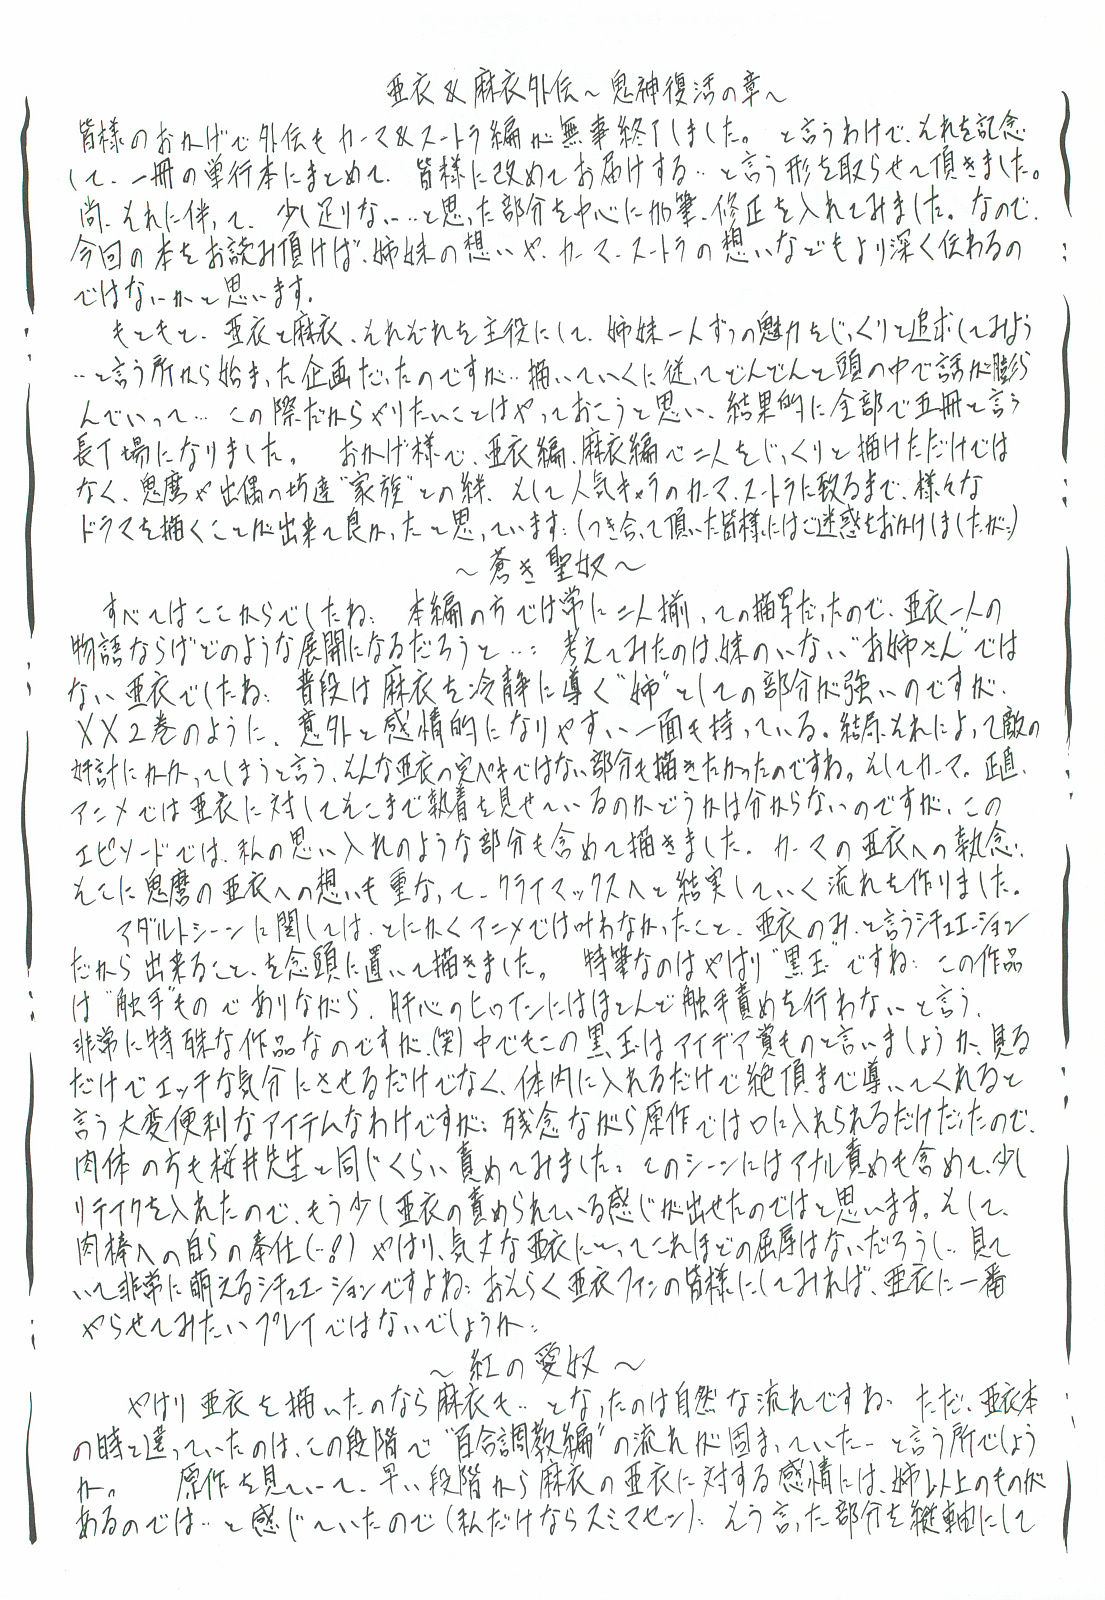 亜衣&麻衣外伝～鬼神復活の章～
皆様のおかげで外伝もカーマ&スートラ編が無事終了しました。 と言うわけで、それを記念
して、一冊の単行本にまとめて、皆様に改めてお届けする‥と言う形を取らせて頂きました。
尚、それに伴って、少し足りない…と思った部分を中心に加筆、修正を入れてみました。なので、
今回の本をお読み頂けば、姉妹の想いや、カーマ、スートラの想いなどもより深く伝わるの
ではないかと思います。
もともと、亜衣と麻衣、それぞれを主役にして、姉妹一人ずつの魅力をじっくりと追求してみよう
‥と言う所から始まった企画だったのですが‥描いていくに従ってどんどんと頭の中で話が膨ら
んでいって… この際だからやりたいことはやっておこうと思い、結果的に全部で五冊と言う
長丁場になりました。 おかげ様で、亜衣編、麻衣編で二人をじっくりと描けただけでは
なく、鬼麿や出偶の坊達“家族”との絆、そして人気キャラのカーマ、スートラに致るまで、様々な
ドラマを描くことが出来て良かったと思っています:(つき合って頂いた皆様にはご迷惑をおかけしましたが:)
～蒼き聖奴～
すべてはここからでしたね: 本編の方では常に二人揃っての描写だったので、亜衣一人の
物語ならばどのような展開になるだろうと…: 考えてみたのは、妹のいない“お姉さん”では
ない亜衣でしたね: 普段は麻衣を冷静に導く“姉”としての部分が強いのですが、
XX2巻のように、意外と感情的になりやすい一面も持っている。結局、それによって敵の
奸計にかかってしまうと言う、そんな亜衣の完ペキではない部分も描きたかったのですね。そしてカーマ。正直、
アニメでは亜衣に対してそこまで執着を見せているのかどうかは分からないのですが、この
エピソードでは、私の思い入れのような部分も含めて描きました。カーマの亜衣への執念、
そこに鬼麿の亜衣への想いも重なって、クライマックスへと結実していく流れを作りました。
アダルトシーンに関しては、とにかくアニメでは叶わなかったこと、亜衣のみ、と言うシチュエーション
だから出来ること、を念頭に置いて描きました。 特筆なのはやはり“黒玉”ですね: この作品
は“触手”ものでありながら、肝心のヒロインにはほとんど触手責めを行わないと言う、
非常に特殊な作品なのですが、(笑)中でもこの黒玉はアイデア賞ものと言いましょうか、見る
だけでエッチな気分にさせるだけでなく、体内に入れるだけで絶頂まで導いてくれると
言う大変便利なアイテムなわけですが: 残念ながら原作では口に入れられるだけだったので、
肉体の方も桜井先生と同じくらい責めてみました: このシーンにはアナル責めも含めて、少し
リテイクを入れたので、もう少し亜衣の責められている感じが出せたのではと思います。そして、
肉棒への自らの奉仕(‥!)やはり、気丈な亜衣にとってこれほどの屈辱はないだろうし‥見て
いて非常に萌えるシチュエーションですよね: おそらく亜衣ファンの皆様にしてみれば、亜衣に一番
やらせてみたいプレイではないでしょうか:
～紅の愛奴～
やはり亜衣を描いたのなら麻衣も‥となったのは自然な流れですね、ただ、亜衣本
の時と違っていたのは、この段階で“百合調教編”の流れが固まっていた‥と言う所でしょう
か。 原作を見ていて、早い段階から麻衣の亜衣に対する感情には、姉以上のものが
あるのでは‥と感じていたので(私だけならスミマセン): そう言った部分を縦軸にして